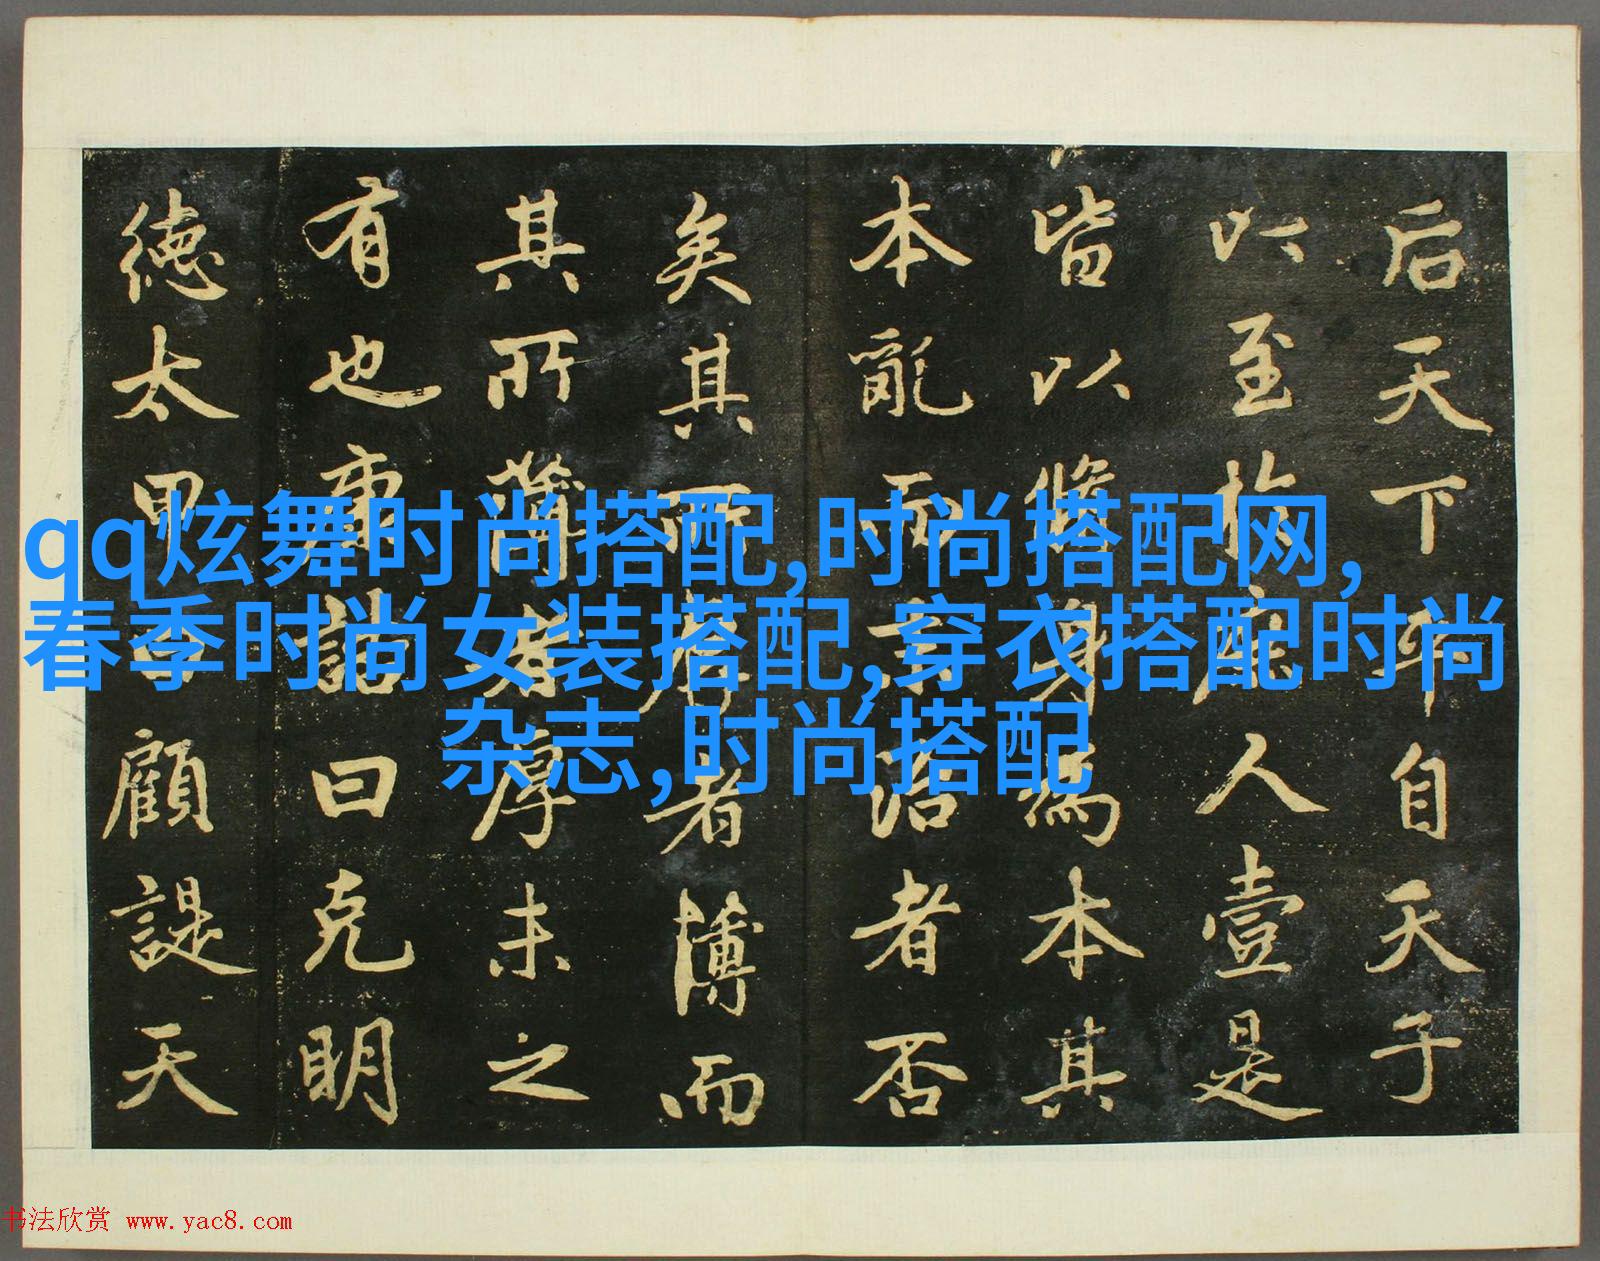 后天下平自天子
以至於庶人壹是
皆以脩身為本其
本亂而末治者否
矣其所厚者薄而
其所薄者厚未之
有也康誥曰克明
德太甲曰顧諟天
qq炫舞时尚搭配,时尚搭配网,
春季时尚女装搭配,穿衣搭配时尚
杂志,时尚搭配
书法欣赏 www.yac8.com